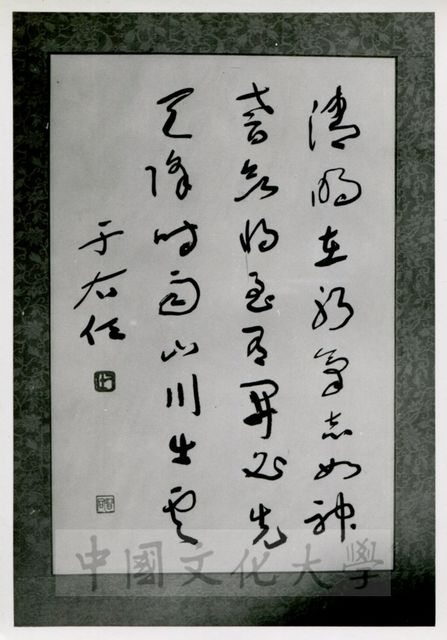 清明在躬氣志如神
耆欲將至有開必先
天降時雨山川出雲
于右任
中國文化大學